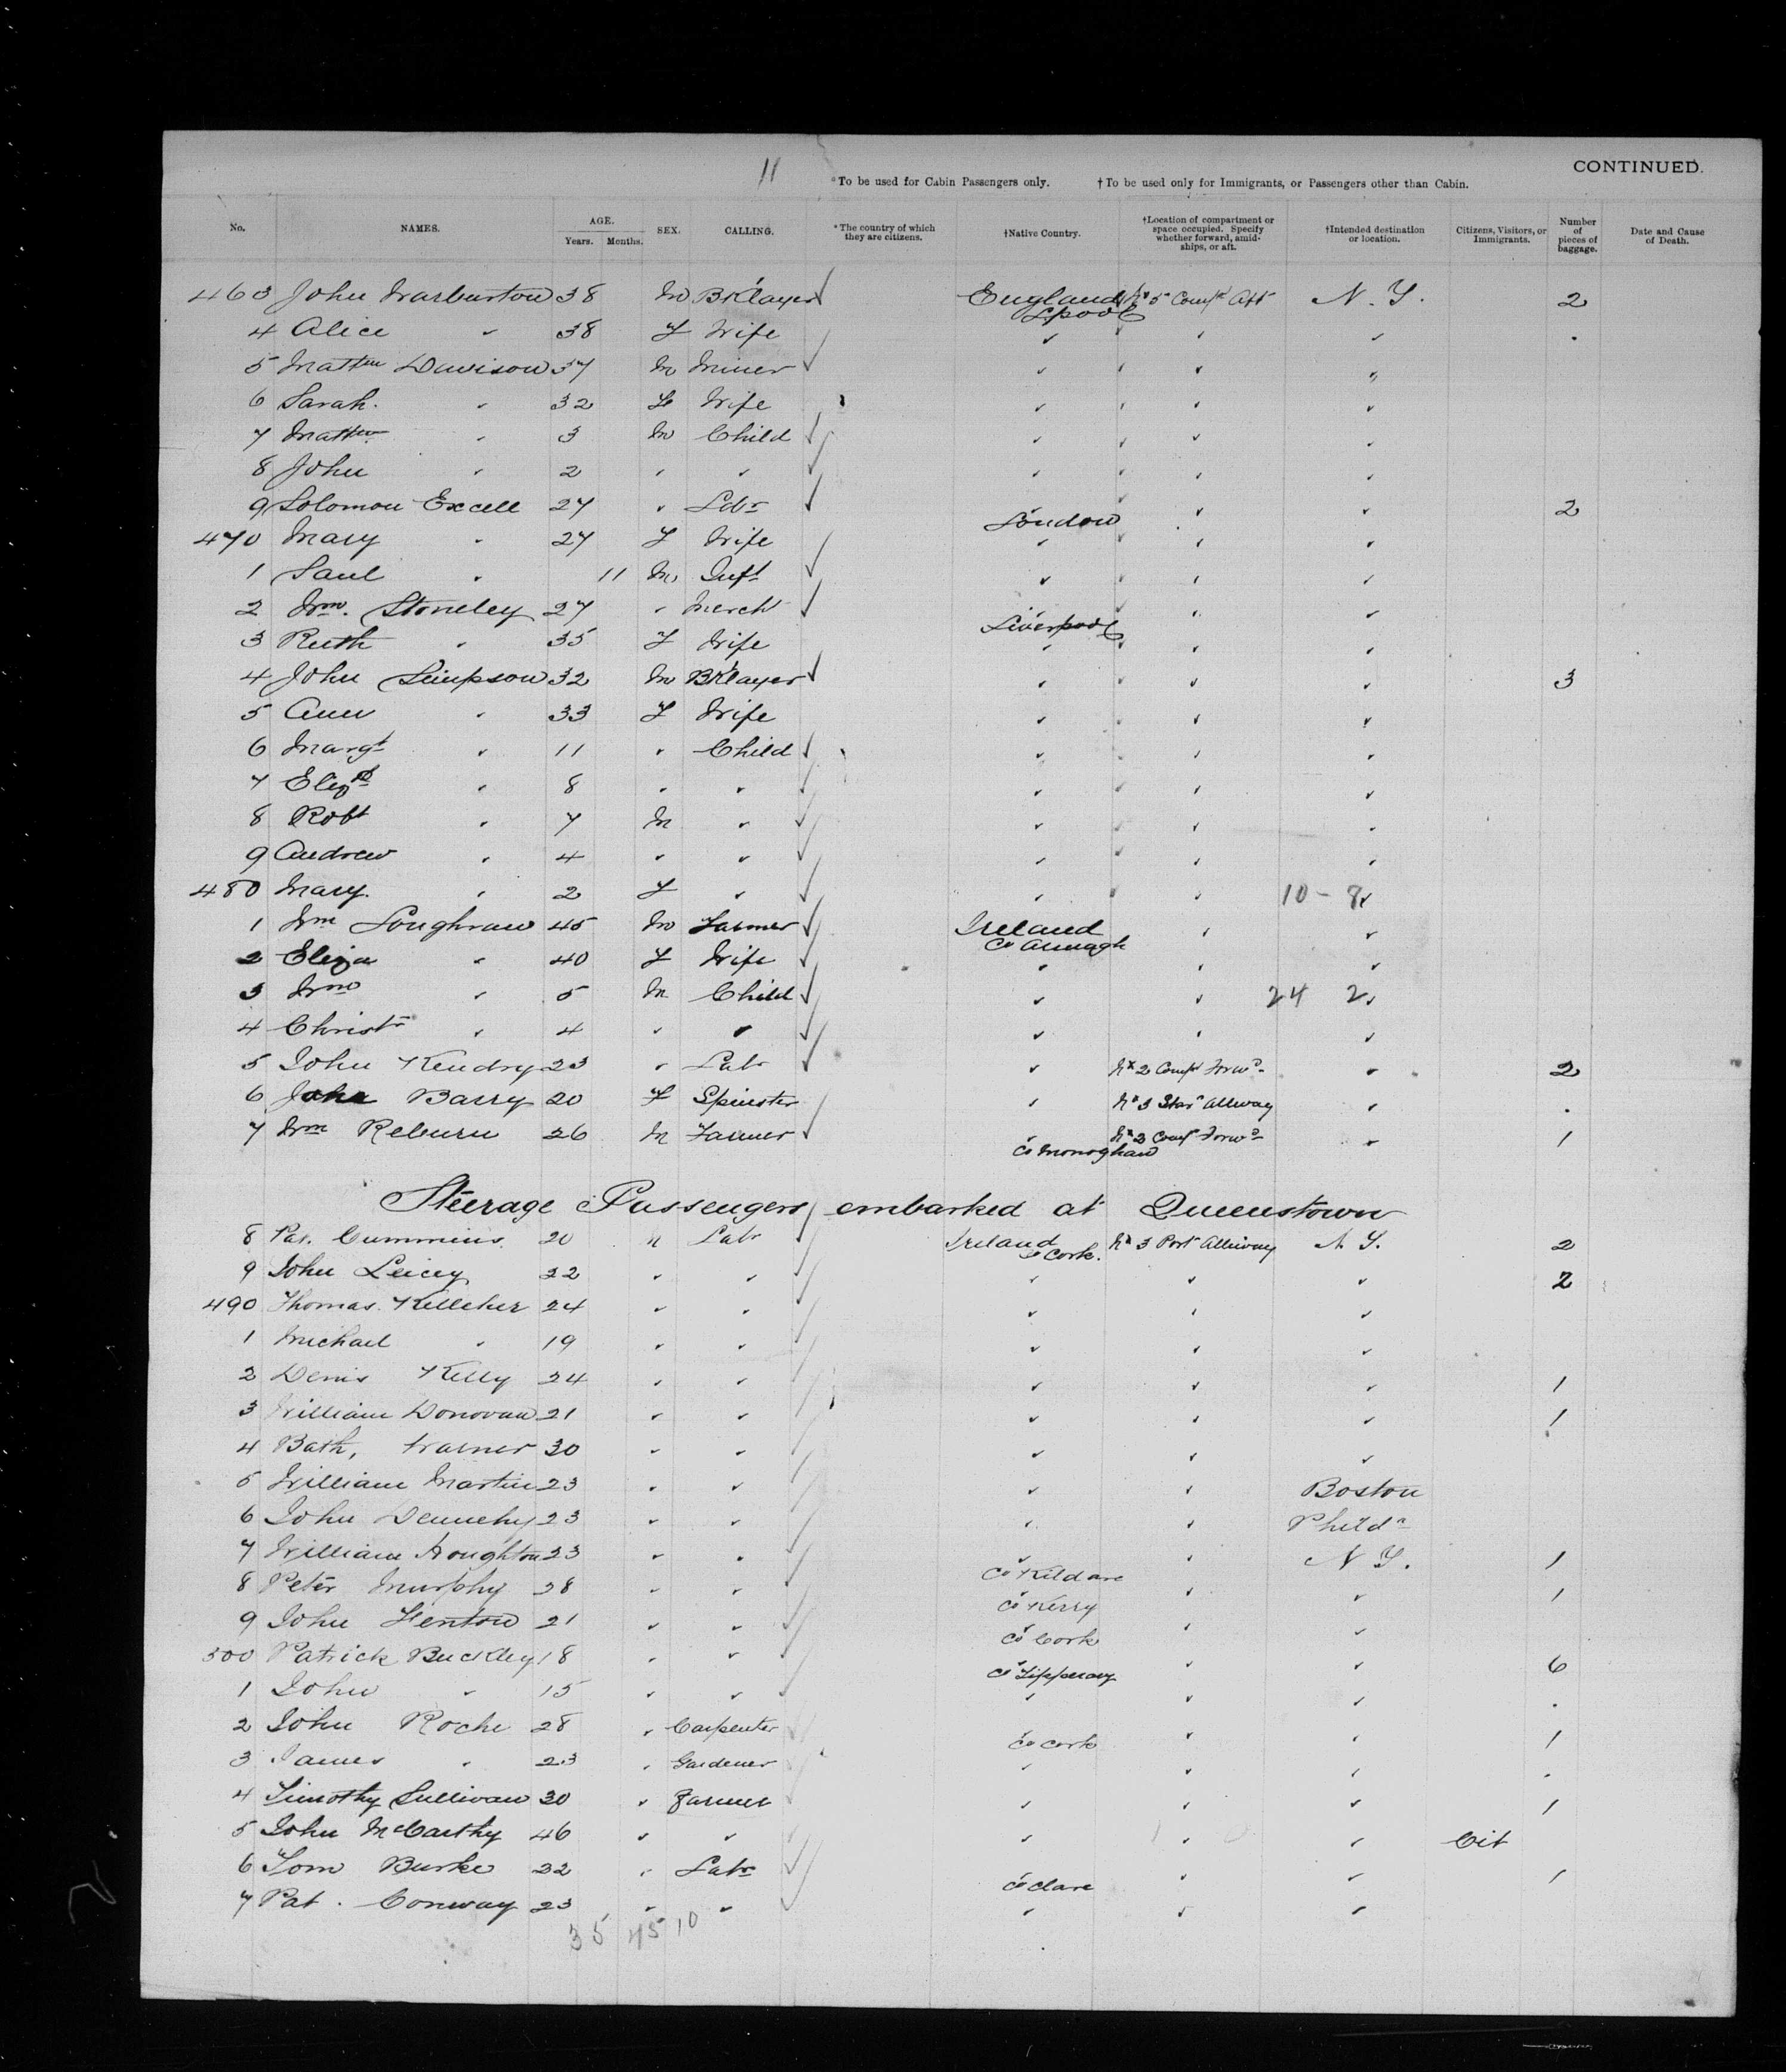 11
CONTINUED.
*To be used for Cabin Passengers only. †To be used only for Immigrants, or Passengers other than Cabin.
No. NAMES. AGE. Years. Months. SEX. CALLING. *The country of which they are citizens. †Native Country. †Location of compartment or space occupied. Specify whether forward, amid-ships, or aft. †Intended destination or location. Citizens, Visitors, or Immigrants. Number of pieces of baggage. Date and Cause of Death.
463 John Warburton 38 M Bklayer England Lpool No 5 Compt Aft N.Y. 2
4 Alice " 38 F Wife " " " "
5 Mattw Davison 37 M Miner " " " "
6 Sarah " 32 F Wife " " " "
7 Mattw " 3 M Child " " " "
8 John " 2 " " " " " "
9 Solomon Excell 27 " Labr London " " 2
470 Mary " 27 F Wife " " "
1 Saul " 11 M Inft " " "
2 Wm. Stoneley 27 " Mercht Liverpool " "
3 Ruth " 35 F Wife " " "
4 John Simpson 32 M Bklayer " " " 3
5 Ann " 33 F Wife " " "
6 Margt " 11 " Child " " "
7 Elizth " 8 " " " " "
8 Robt " 7 M " " " "
9 Andrew " 4 " " " " "
480 Mary " 2 F " " " 10 - 8 "
1 Wm Loughran 45 M Farmer Ireland Co Armagh " "
2 Eliza " 40 F Wife " " "
3 Wm " 5 M Child " " 24 2 "
4 Christr " 4 " " " " "
5 John Kendry 23 " Labr " No 2 Compt Forwd " 2
6 Barry 20 F Spinster " No 3 Star Allway "
7 Wm Reburn 26 M Farmer Co Monoghan No 2 Compt Forwd " 1
Steerage Passengers embarked at Queenstown
8 Pat. Cummins 20 M Labr Ireland Co Cork. No 3 Port Alleway N.Y. 2
9 John Leicey 22 " " " " " 2
490 Thomas Kelleher 24 " " " " "
1 Michael " 19 " " " " "
2 Denis Kelly 24 " " " " " 1
3 William Donovan 21 " " " " " 1
4 Bath, 30 " " " " "
5 William Martin 23 " " " " Boston
6 John Dennehy 23 " " " " Philda
7 William Houghton 23 " " Co Kildare " N.Y. 1
8 Peter Murphy 28 " " Co Kerry " " 1
9 John Fenton 21 " " Co Cork " "
500 Patrick Buckley 18 " " Co Tipperary " " 6
1 John " 15 " " " " "
2 John Roche 28 " Carpenter Co Cork " " 1
3 James " 23 " Gardener " " "
4 Timothy Sullivan 30 " Farmer " " " 1
5 John McCarthy 46 " " " " " Cit
6 Tom Burke 22 " Labr Co Clare " " 1
7 Pat. Conway 23 " " " " "
35 45 10